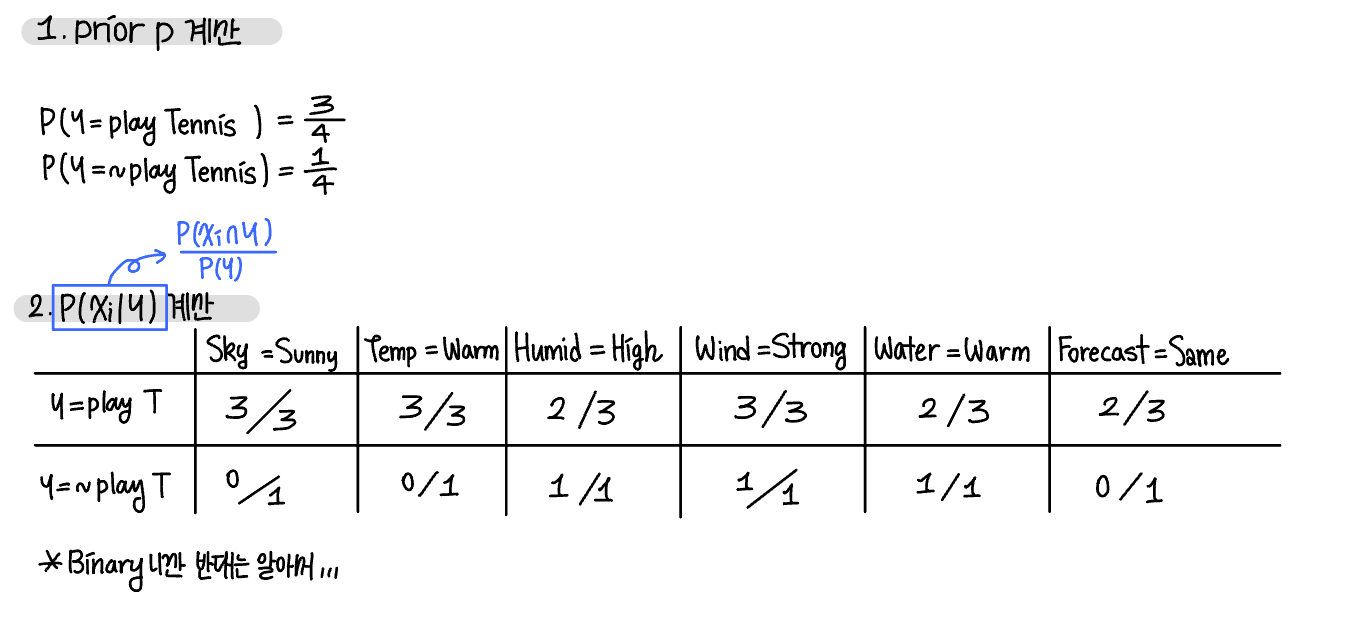 1. prior p 계산
P(Y=play Tennis ) = 3/4
P(Y=~play Tennis) = 1/4
P(Xi∩Y)
P(Y)
2. P(Xi|Y) 계산
Sky =Sunny Temp =Warm Humid =High Wind =Strong Water =Warm Forecast =Same
Y=play T 3/3 3/3 2/3 3/3 2/3 2/3
Y=~play T 0/1 0/1 1/1 1/1 1/1 0/1
*Binary니깐 반대는 알아서...